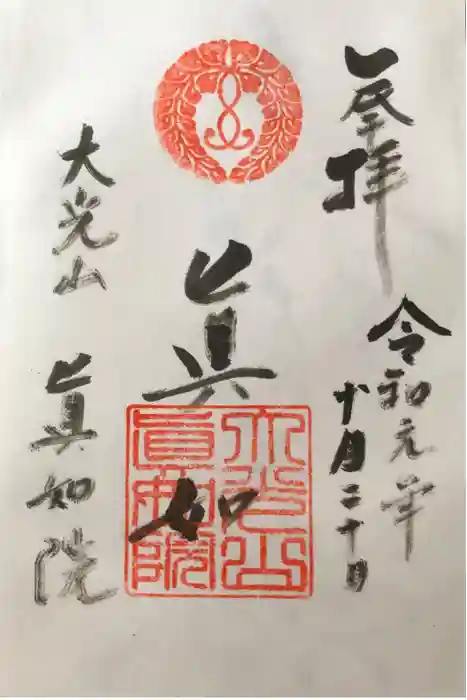 奉拝
令和元年
十月二十日
眞如
大光山
眞如院
大光山
眞如院